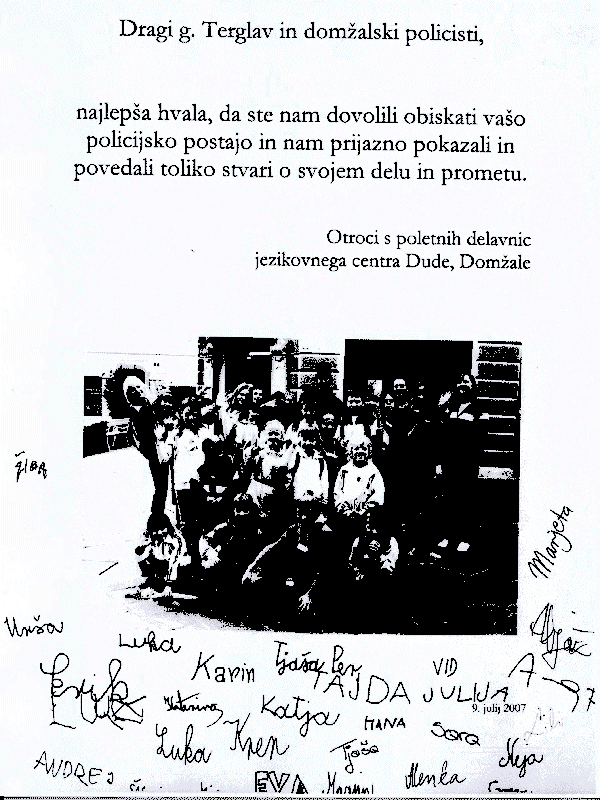 Dragi g. Terglav in domžalski policisti,
najlepša hvala, da ste nam dovolili obiskati vašo
policijsko postajo in nam prijazno pokazali in
povedali toliko stvari o svojem delu in prometu.
Otroci s poletnih delavnic
jezikovnega centra Dude, Domžale
Žiga
Marjeta
Urša
Luka
Karin
Tjaša
VID
Erik
TAJDA
JULIJA
9. julij 2007
Katarina
Katja
HANA
Sara
Luka
Tjaša
ANDREJ
EVA
Menka
Neja